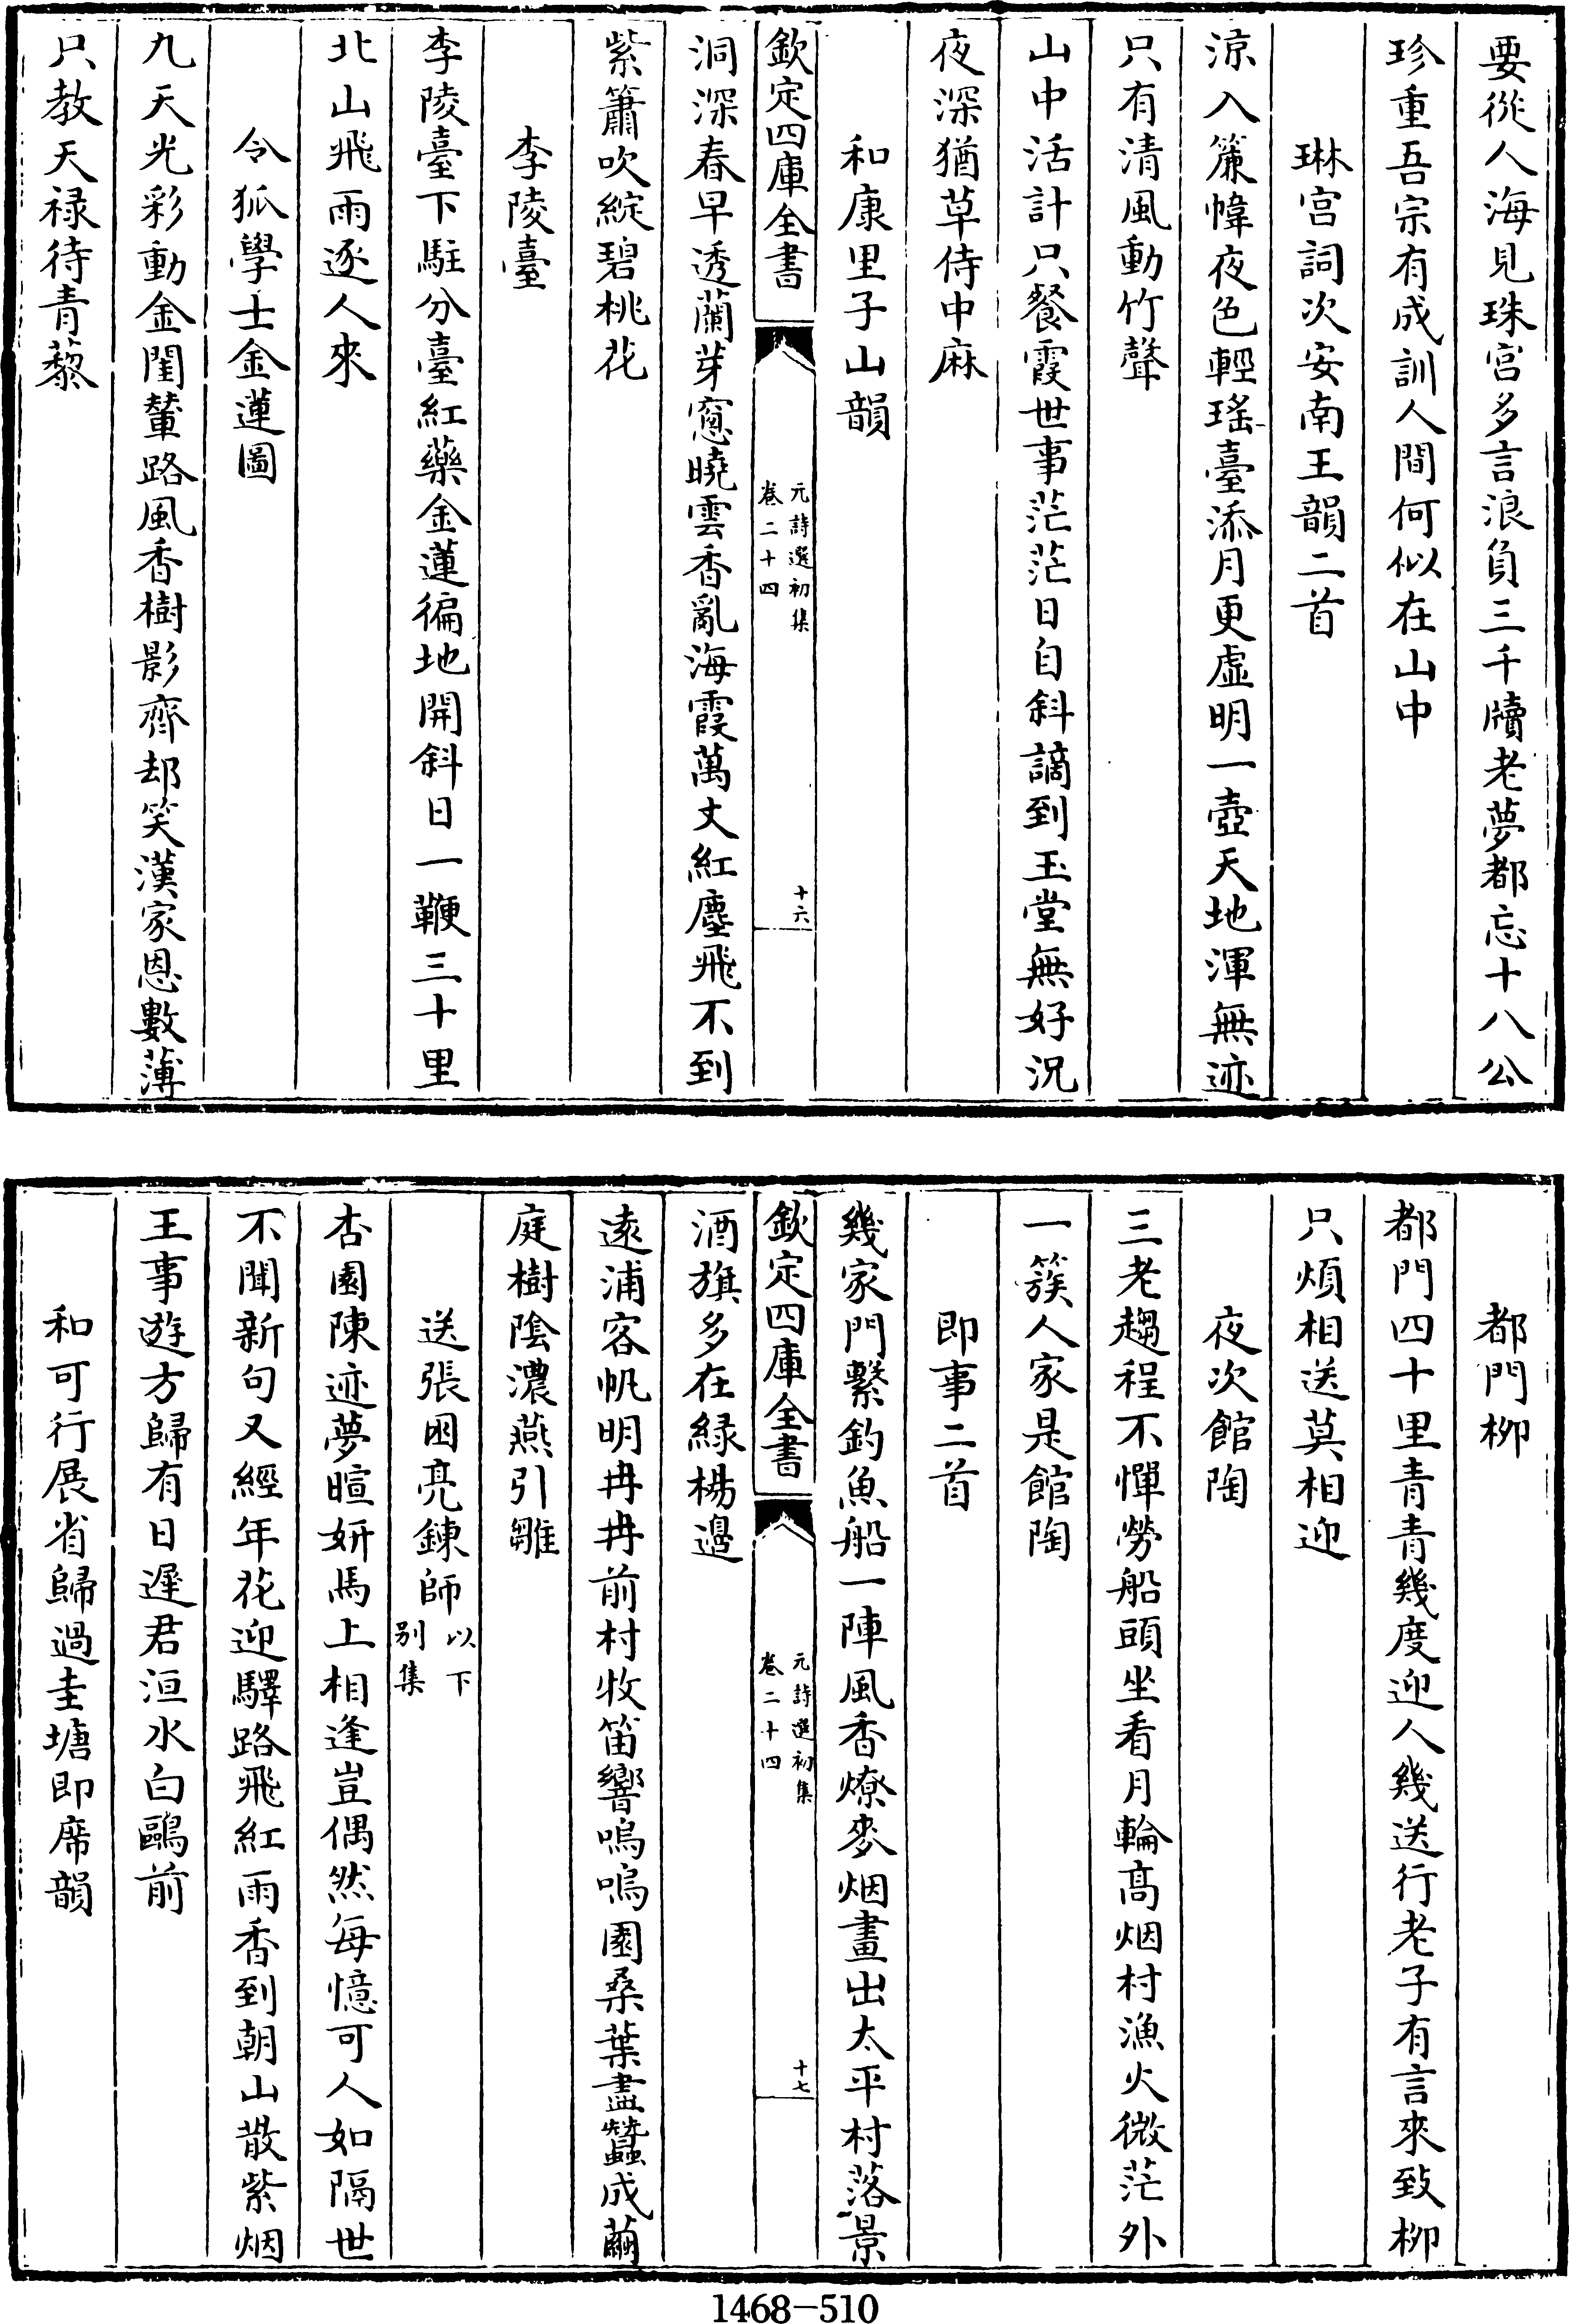 要從人海見珠宮多言浪負三千牘老夢都忘十八公
珍重吾宗有成訓人間何似在山中
琳宮詞次安南王韻二首
涼入簾幃夜色輕瑤臺添月更虛明一壺天地渾無迹
只有清風動竹聲
山中活計只餐霞世事茫茫日自斜謫到玉堂無好況
夜深猶草侍中麻
和康里子山韻
欽定四庫全書
元詩選初集
卷二十四
十六
洞深春早透蘭芽窓曉雲香亂海霞萬丈紅塵飛不到
紫簫吹綻碧桃花
李陵臺
李陵臺下駐分臺紅藥金蓮徧地開斜日一鞭三十里
北山飛雨逐人來
令狐學士金蓮圖
九天光彩動金閨輦路風香樹影齊却笑漢家恩數薄
只教天祿待青藜
都門柳
都門四十里青青幾度迎人幾送行老子有言來致柳
只煩相送莫相迎
夜次館陶
三老趨程不憚勞船頭坐看月輪高烟村漁火微茫外
一簇人家是館陶
即事二首
幾家門繫釣魚船一陣風香燎麥烟畫出太平村落景
欽定四庫全書
元詩選初集
卷二十四
十七
酒旗多在緑楊邊
遠浦客帆明冉冉前村牧笛響嗚嗚園桑葉盡蠶成繭
庭樹陰濃燕引雛
送張困亮鍊師以下别集
杏園陳迹夢暄妍馬上相逢豈偶然每憶可人如隔世
不聞新句又經年花迎驛路飛紅雨香到朝山散紫烟
王事遊方歸有日遲君洹水白鷗前
和可行展省歸過圭塘即席韻
1468—510